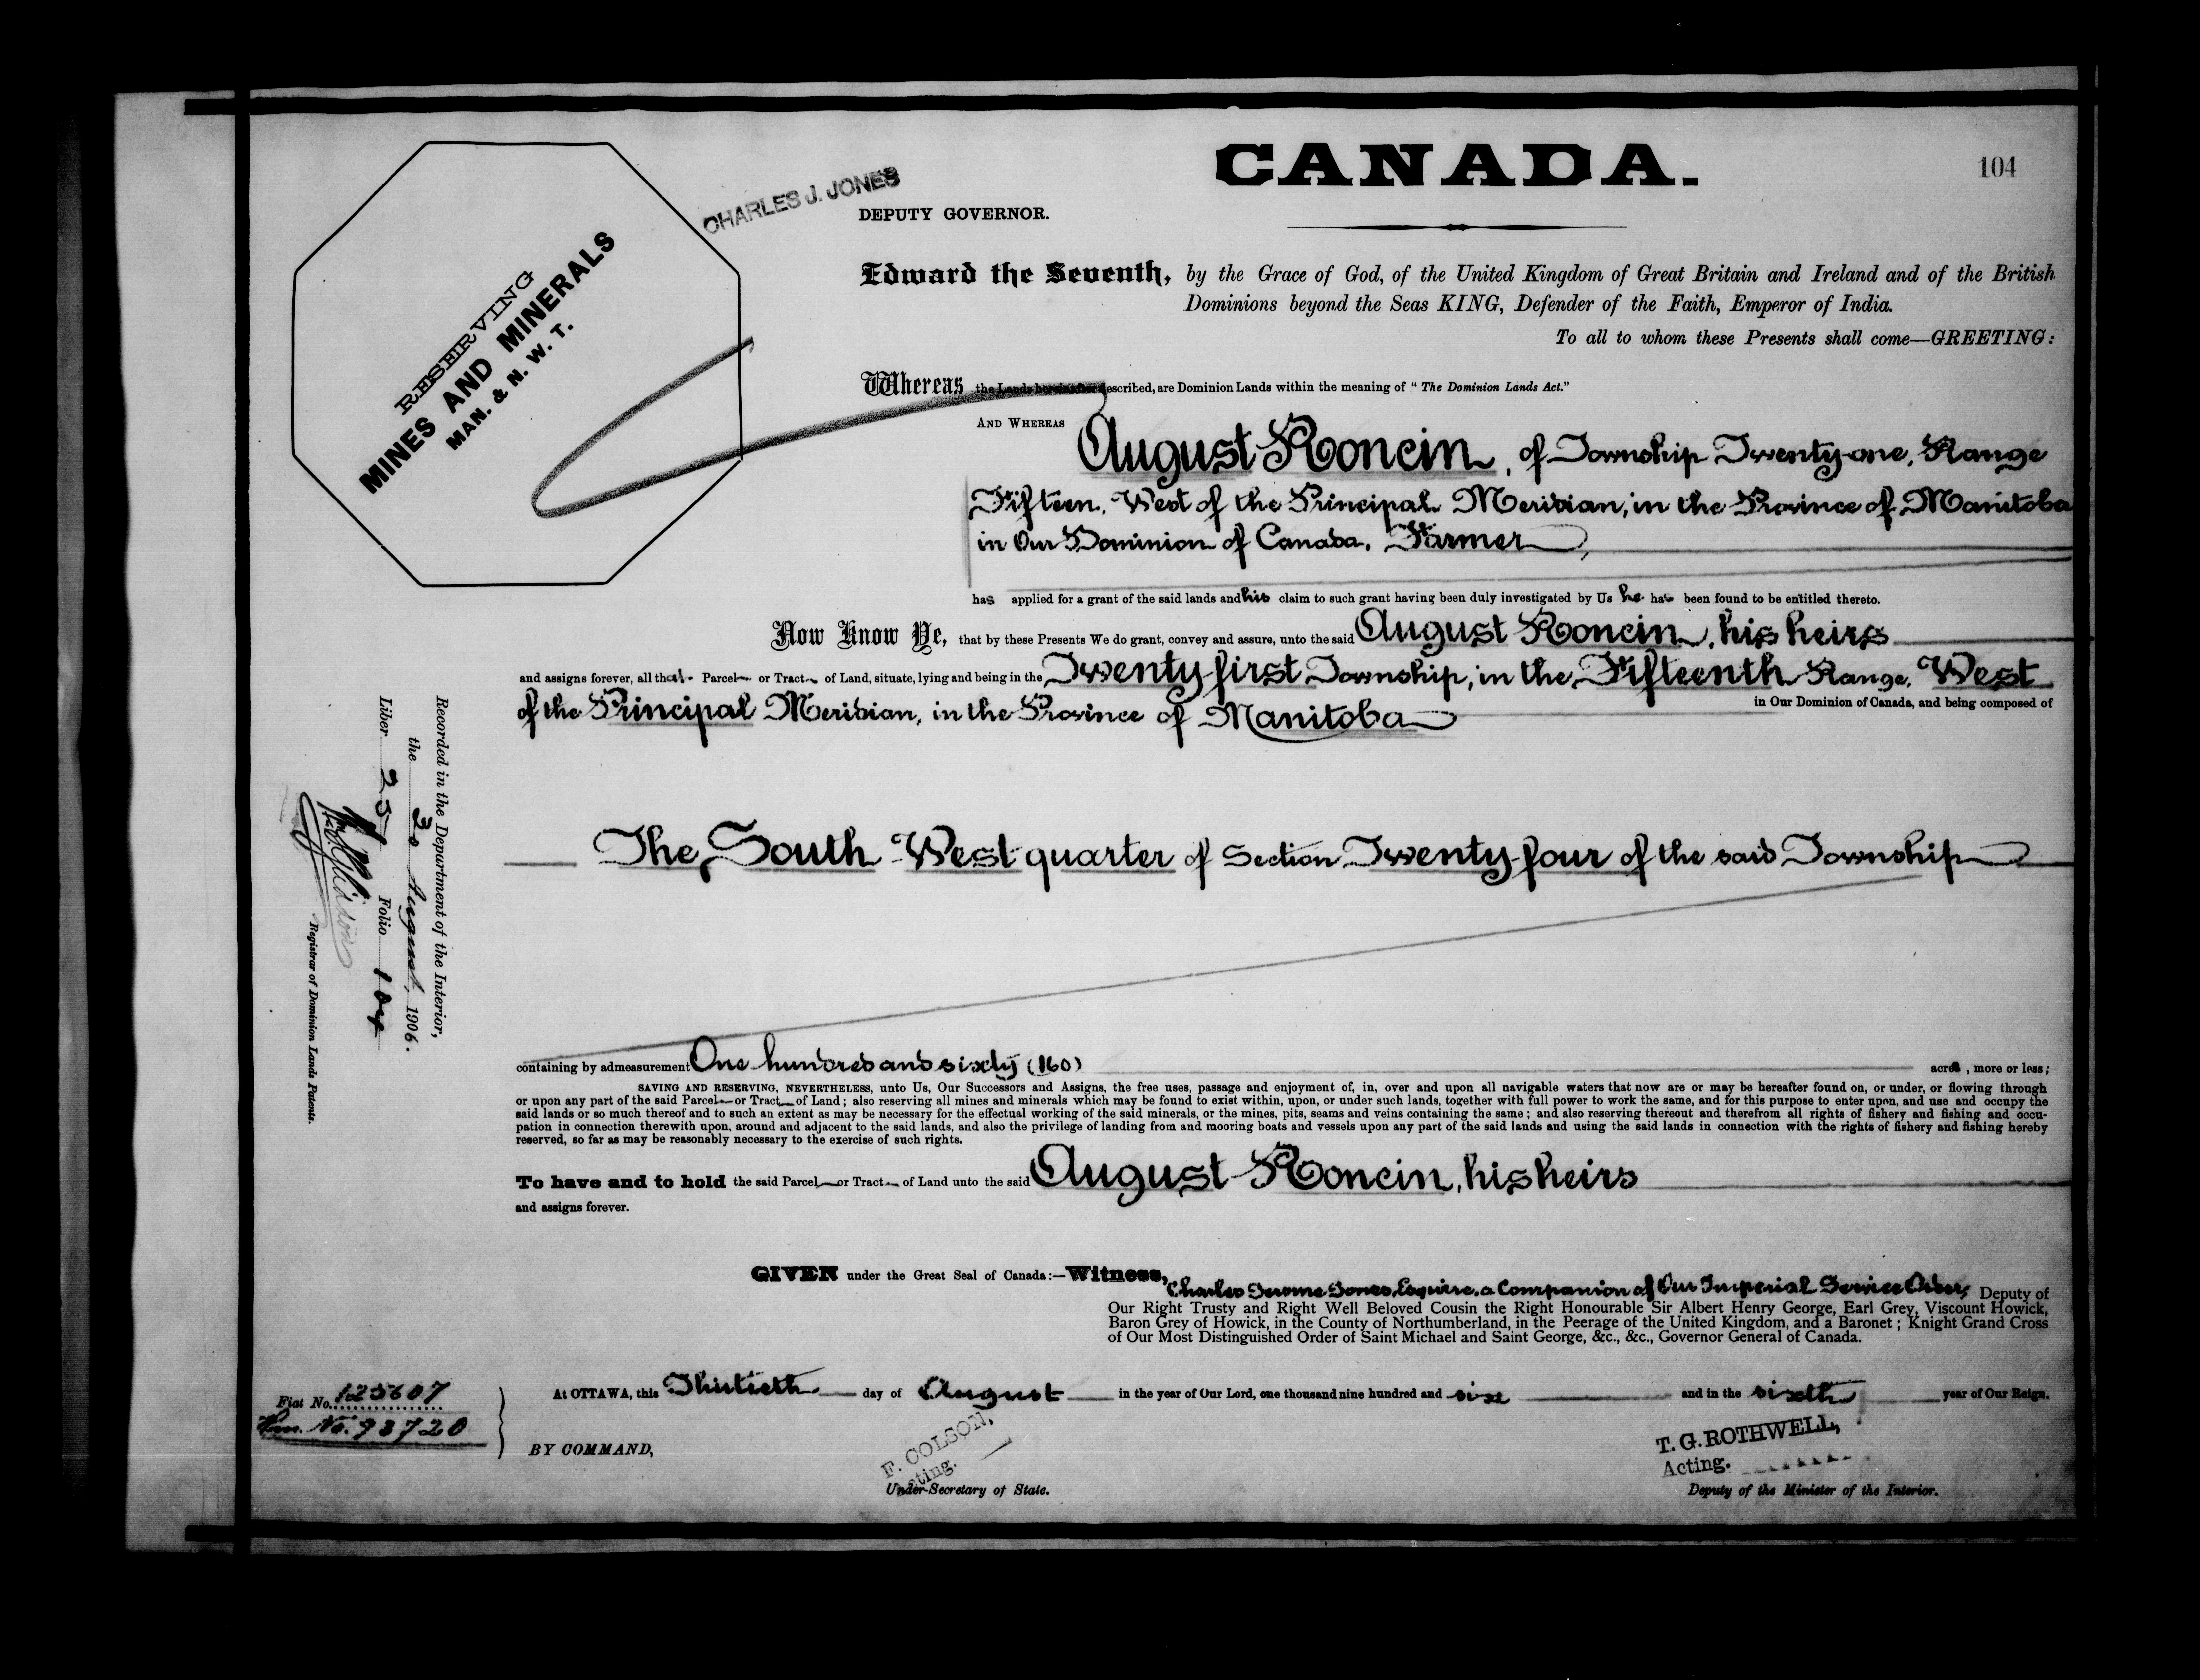 CANADA.
104
CHARLES J. JONES
DEPUTY GOVERNOR.
RESERVING
MINES AND MINERALS
MAN. & N. W. T.
Edward the Seventh, by the Grace of God, of the United Kingdom of Great Britain and Ireland and of the British
Dominions beyond the Seas KING, Defender of the Faith, Emperor of India.
To all to whom these Presents shall come—GREETING:
Whereas the Lands hereinafter described, are Dominion Lands within the meaning of "The Dominion Lands Act."
AND WHEREAS August Roncin, of Township Twenty-one, Range
Fifteen, West of the Principal Meridian, in the Province of Manitoba
in Our Dominion of Canada, Farmer,
has applied for a grant of the said lands and his claim to such grant having been duly investigated by Us he has been found to be entitled thereto.
Now Know Ye, that by these Presents We do grant, convey and assure, unto the said August Roncin, his heirs
and assigns forever, all that Parcel or Tract of Land, situate, lying and being in the Twenty-first Township, in the Fifteenth Range, West
of the Principal Meridian, in the Province of Manitoba in Our Dominion of Canada, and being composed of
The South West quarter of Section Twenty-four of the said Township
Recorded in the Department of the Interior,
the 30 August, 1906.
Liber 251 Folio 104
Registrar of Dominion Lands Patents.
containing by admeasurement One hundred and sixty (160) acres, more or less;
SAVING AND RESERVING, NEVERTHELESS, unto Us, Our Successors and Assigns, the free uses, passage and enjoyment of, in, over and upon all navigable waters that now are or may be hereafter found on, or under, or flowing through
or upon any part of the said Parcel or Tract of Land; also reserving all mines and minerals which may be found to exist within, upon, or under such lands, together with full power to work the same, and for this purpose to enter upon, and use and occupy the
said lands or so much thereof and to such an extent as may be necessary for the effectual working of the said minerals, or the mines, pits, seams and veins containing the same; and also reserving thereout and therefrom all rights of fishery and fishing and occu-
pation in connection therewith upon, around and adjacent to the said lands, and also the privilege of landing from and mooring boats and vessels upon any part of the said lands and using the said lands in connection with the rights of fishery and fishing hereby
reserved, so far as may be reasonably necessary to the exercise of such rights.
To have and to hold the said Parcel or Tract of Land unto the said August Roncin, his heirs
and assigns forever.
GIVEN under the Great Seal of Canada:—Witness, Charles Jerome Jones, Esquire, a Companion of Our Imperial Service Order, Deputy of
Our Right Trusty and Right Well Beloved Cousin the Right Honourable Sir Albert Henry George, Earl Grey, Viscount Howick,
Baron Grey of Howick, in the County of Northumberland, in the Peerage of the United Kingdom, and a Baronet; Knight Grand Cross
of Our Most Distinguished Order of Saint Michael and Saint George, &c., &c., Governor General of Canada.
At OTTAWA, this Thirtieth day of August in the year of Our Lord, one thousand nine hundred and six and in the sixth year of Our Reign.
Fiat No. 125607
Hm. No. 98720
BY COMMAND,
F. COLSON,
Acting.
Under-Secretary of State.
T. G. ROTHWELL,
Acting.
Deputy of the Minister of the Interior.